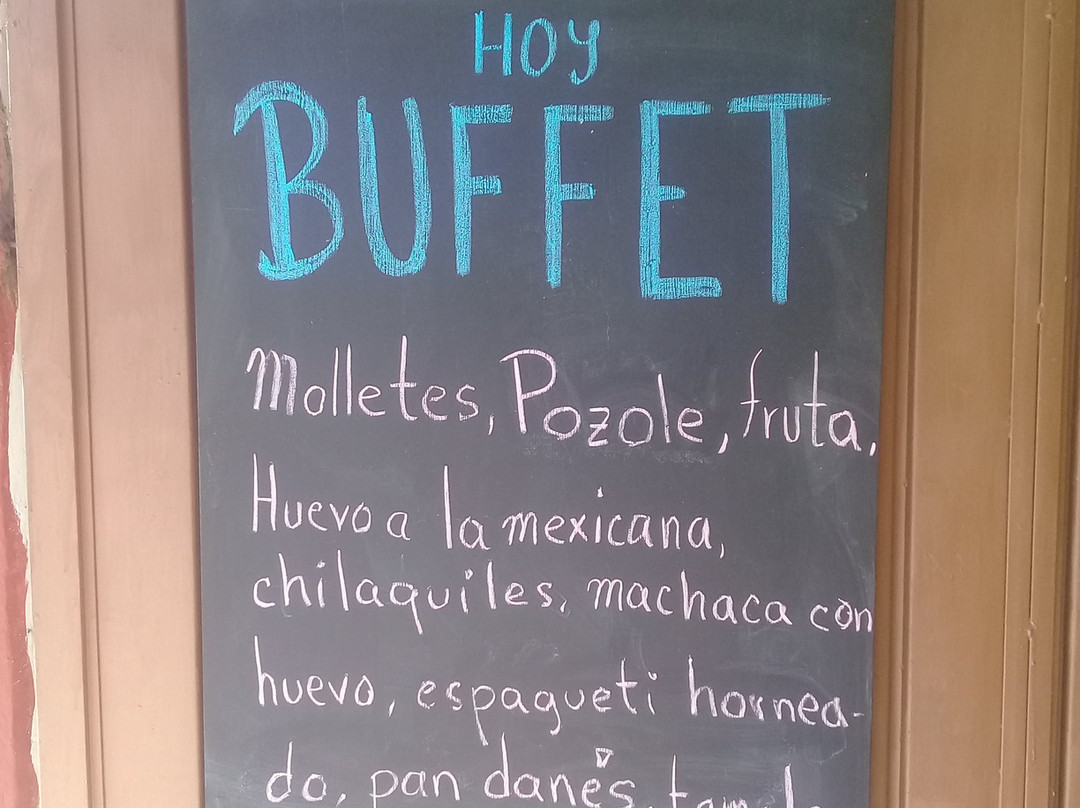 HOY
BUFFET
Molletes, Pozole, fruta,
Huevo a la mexicana,
chilaquiles, machaca con
huevo, espagueti hornea-
do, pan danés,